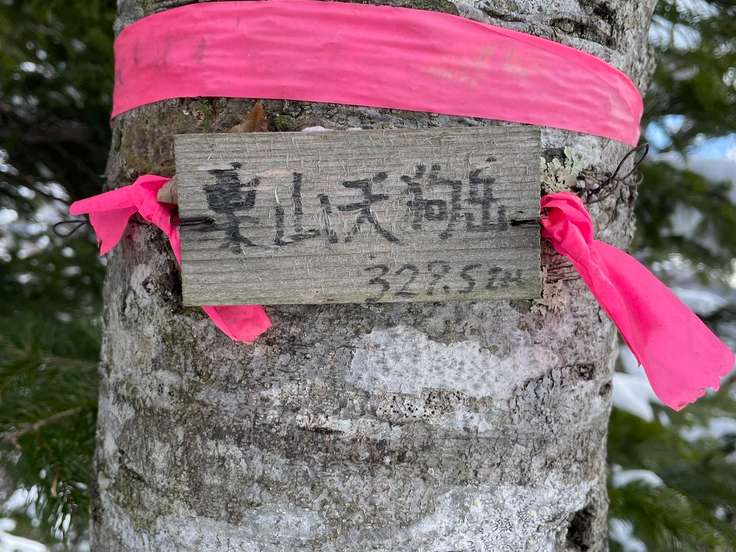 栗山天狗岳
329.5m